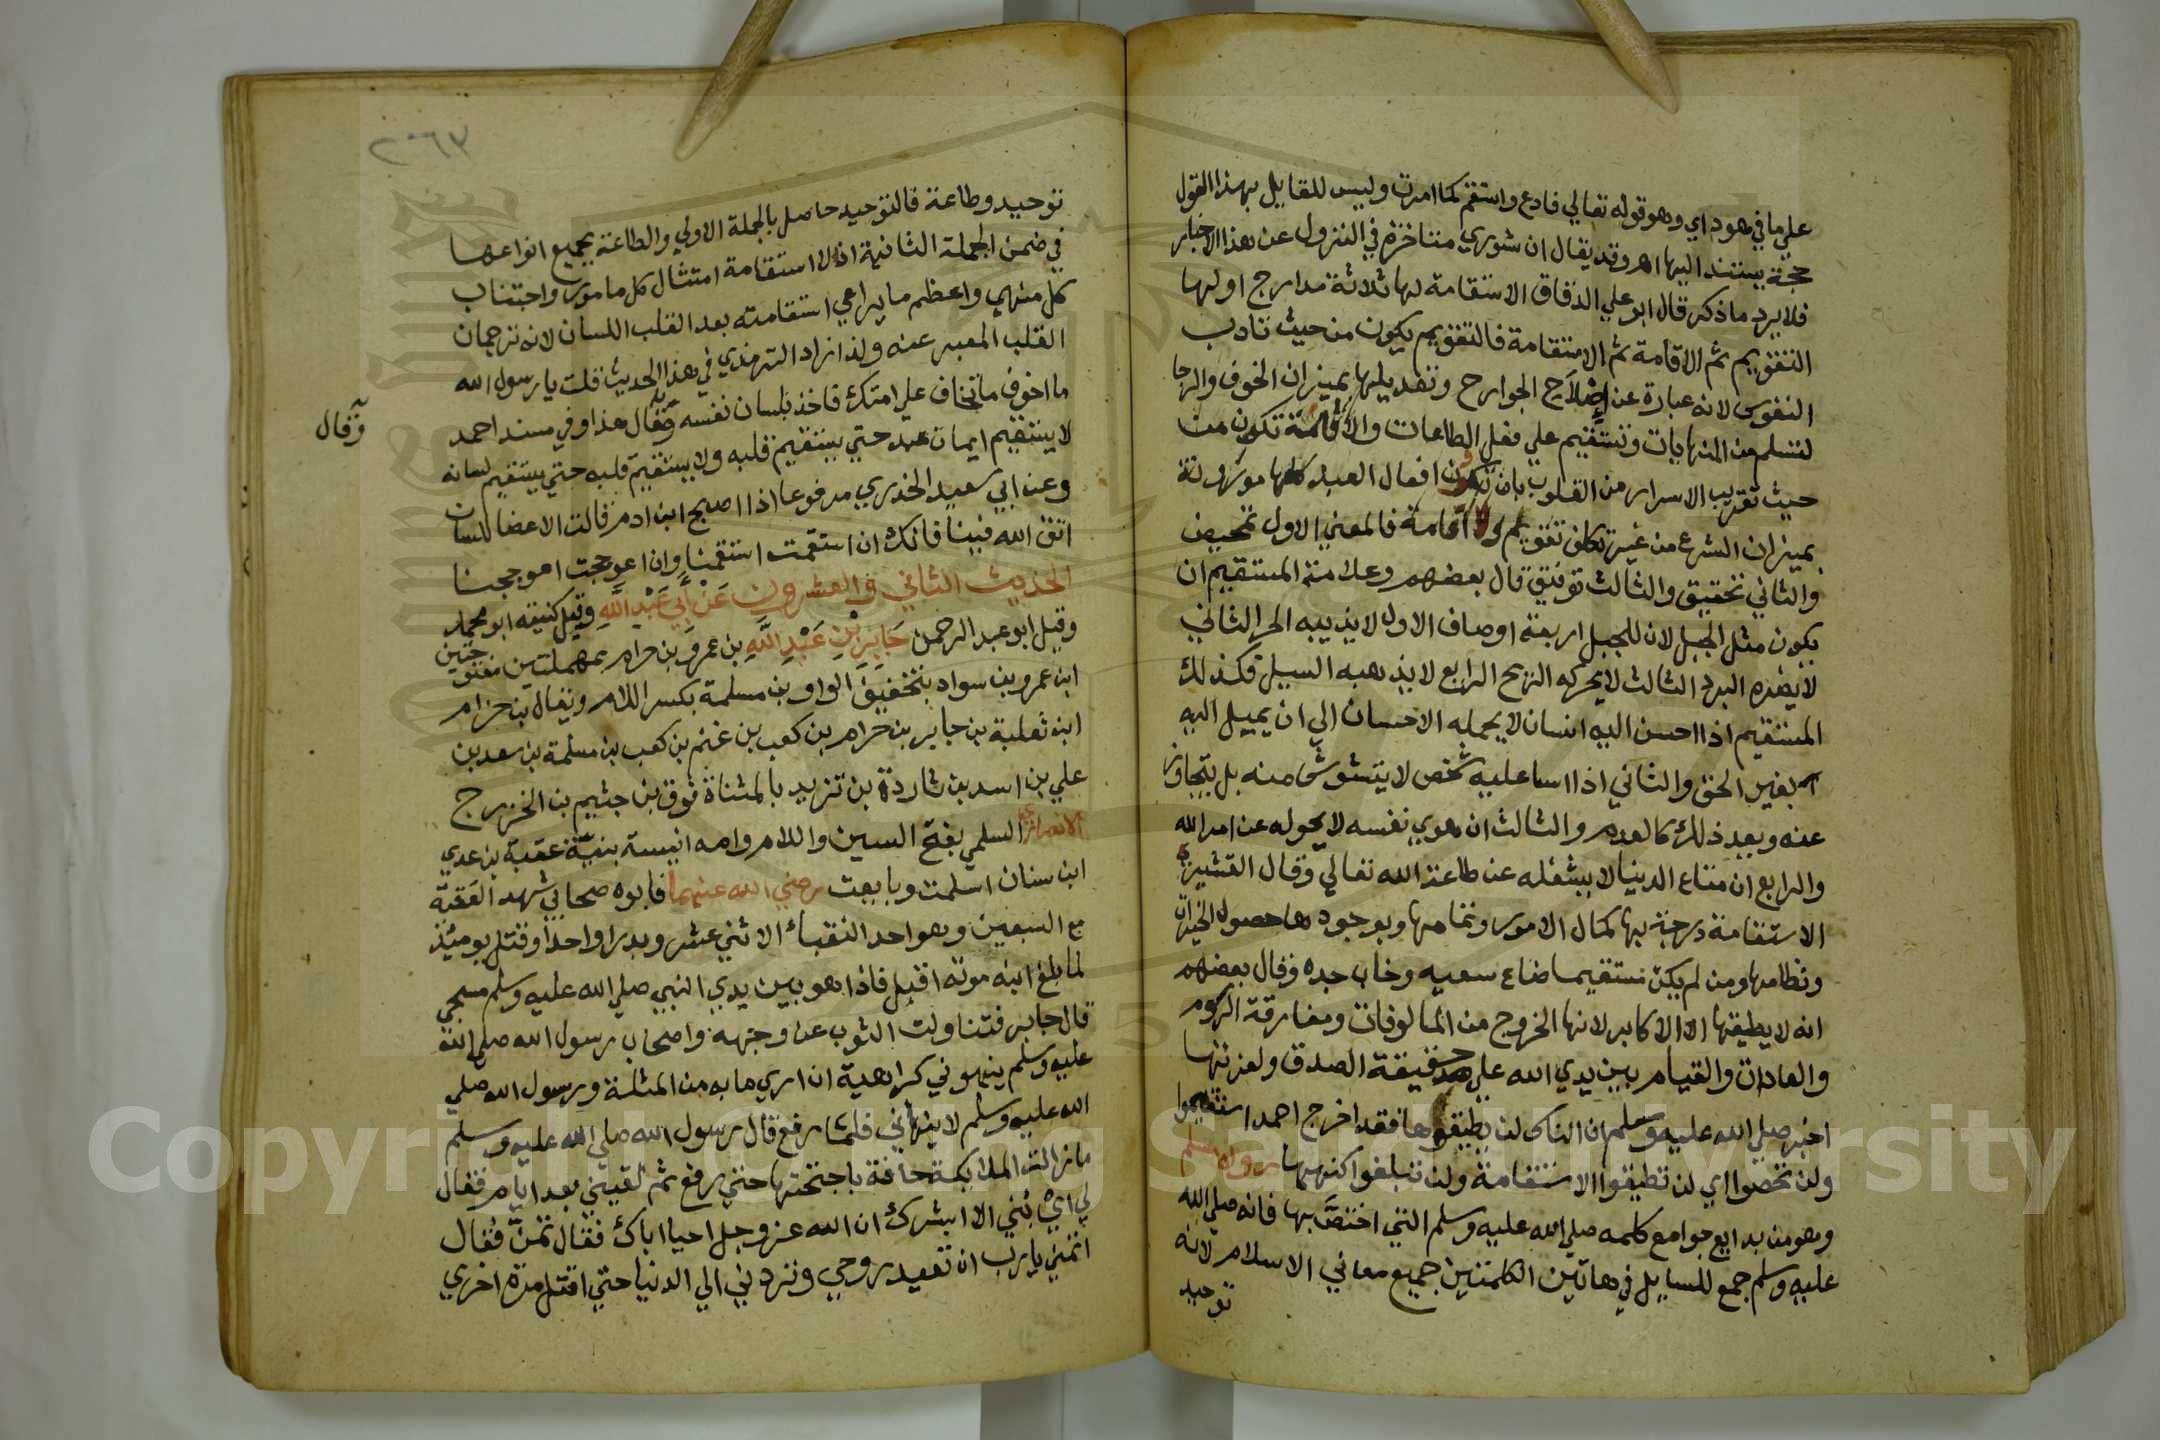 علي ما في هود اي وهو قوله تعالي فادع واستقم كما امرت وليس للقايل بهذا القول
حجة يستند اليها اهـ وقد يقال ان شوري متاخرة في النزول عن هذا الاخبار
فلا يرد ما ذكر قال ابو علي الدقاق الاستقامة لها ثلاثة مدارج اولها
التقويم ثم الاقامة ثم الاستقامة فالتقويم يكون من حيث تادب
النفوس لانه عبارة عن اصلاح الجوارح وتعديلها بميزان الخوف والرجا
لتسلم من المنهيات وتستقيم علي فعل الطاعات والاقامة تكون من
حيث تقريب الاسرار من القلوب بان تكون افعال العبد كلها موزونة
بميزان الشرع من غير تكلف تقويم ولا اقامة فالمعني الاول تمحيض
والثاني تحقيق والثالث توفيق قال بعضهم وعلامة المستقيم ان
يكون مثل الجبل لان للجبل اربعة اوصاف الاول لا يذيبه الحر الثاني
لا يضره البرد الثالث لا يحركه الريح الرابع لا يذهبه السيل فكذلك
المستقيم اذا احسن اليه انسان لا يحمله الاحسان الي ان يميل اليه
بغير الحق والثاني اذا اسا عليه شخص لا يتشوش منه بل يتجاوز
عنه ويعد ذلك كالعدم والثالث ان هوي نفسه لا يحوله عن امر الله
والرابع ان متاع الدنيا لا يشغله عن طاعة الله تعالي وقال القشيري
الاستقامة درجة بها كمال الامور وتمامها وبوجودها حصول الخيرات
ونظامها ومن لم يكن مستقيما ضاع سعيه وخاب جده وقال بعضهم
انه لا يطيقها الا الاكابر لانها الخروج من المالوفات ومفارقة الرسوم
والعادات والقيام بين يدي الله علي حقيقة الصدق ولعزتها
اخبر صلي الله عليه وسلم ان الناس لن يطيقوها فقد اخرج احمد استقيموا
ولن تحصوا اي لن تطيقوا الاستقامة ولن تبلغوا كنهها رواه مسلم
وهو من بدايع جوامع كلمه صلي الله عليه وسلم التي اختص بها فانه صلي الله
عليه وسلم جمع للسايل في هاتين الكلمتين جميع معاني الاسلام لانه
توحيد
٢٠٦٣
توحيد وطاعة فالتوحيد حاصل بالجملة الاولي والطاعة بجميع انواعها
في ضمن الجملة الثانية اذ الاستقامة امتثال كل مامور واجتناب
كل منهي واعظم ما يراعي استقامته بعد القلب اللسان لانه ترجمان
القلب المعبر عنه ولذا زاد الترمذي في هذا الحديث قلت يا رسول الله
ما اخوف ما تخاف علي امتك فاخذ بلسان نفسه وقال هذا وفي مسند احمد
وقال
لا يستقيم ايمان عبد حتي يستقيم قلبه ولا يستقيم قلبه حتي يستقيم لسانه
وعن ابي سعيد الخدري مرفوعا اذا اصبح ابن ادم قالت الاعضا للسان
اتق الله فينا فانك ان استقمت استقمنا وان اعوججت اعوججنا
الحديث الثاني والعشرون عن أبي عبد الله وقيل كنيته ابو محمد
وقيل ابو عبد الرحمن جابر بن عبد الله بن عمرو بن حرام بمهملتين مفتوحتين
ابن عمرو بن سواد بتخفيف الواو بن مسلمة بكسر اللام ويقال بن حزام
ابن ثعلبة بن جابر بن حرام بن كعب بن غنم بن كعب بن مسلمة بن سعد بن
علي بن اسد بن شاردة بن تزيد بالمثناة فوق بن جثيم بن الخزرج
الانصاري السلمي بفتح السين واللام وامه انيسة بنت عقبة بن عدي
ابن سنان اسلمت وبايعت رضي الله عنهما فابوه صحابي شهد العقبة
مع السبعين وهو احد النقباء الاثني عشر وبدرا واحدا وقتل يوميذ
لما بلغ ابنه موته اقبل فاذا هو بين يدي النبي صلي الله عليه وسلم مسجي
قال جابر فتناولت الثوب عن وجهه واصحاب رسول الله صلي الله
عليه وسلم ينهوني كراهية ان اري ما به من المثلة ورسول الله صلي
الله عليه وسلم لا ينهاني فلما رفع قال رسول الله صلي الله عليه وسلم
ما زالت الملائكة حافة باجنحتها حتي رفع ثم لقيني بعد ايام فقال
لي اي بني الا ابشرك ان الله عز وجل احيا اباك فقال تمن فقال
اتمني يا رب ان تعيد روحي وتردني الي الدنيا حتي اقتل مرة اخري
Copyright © King Saud University